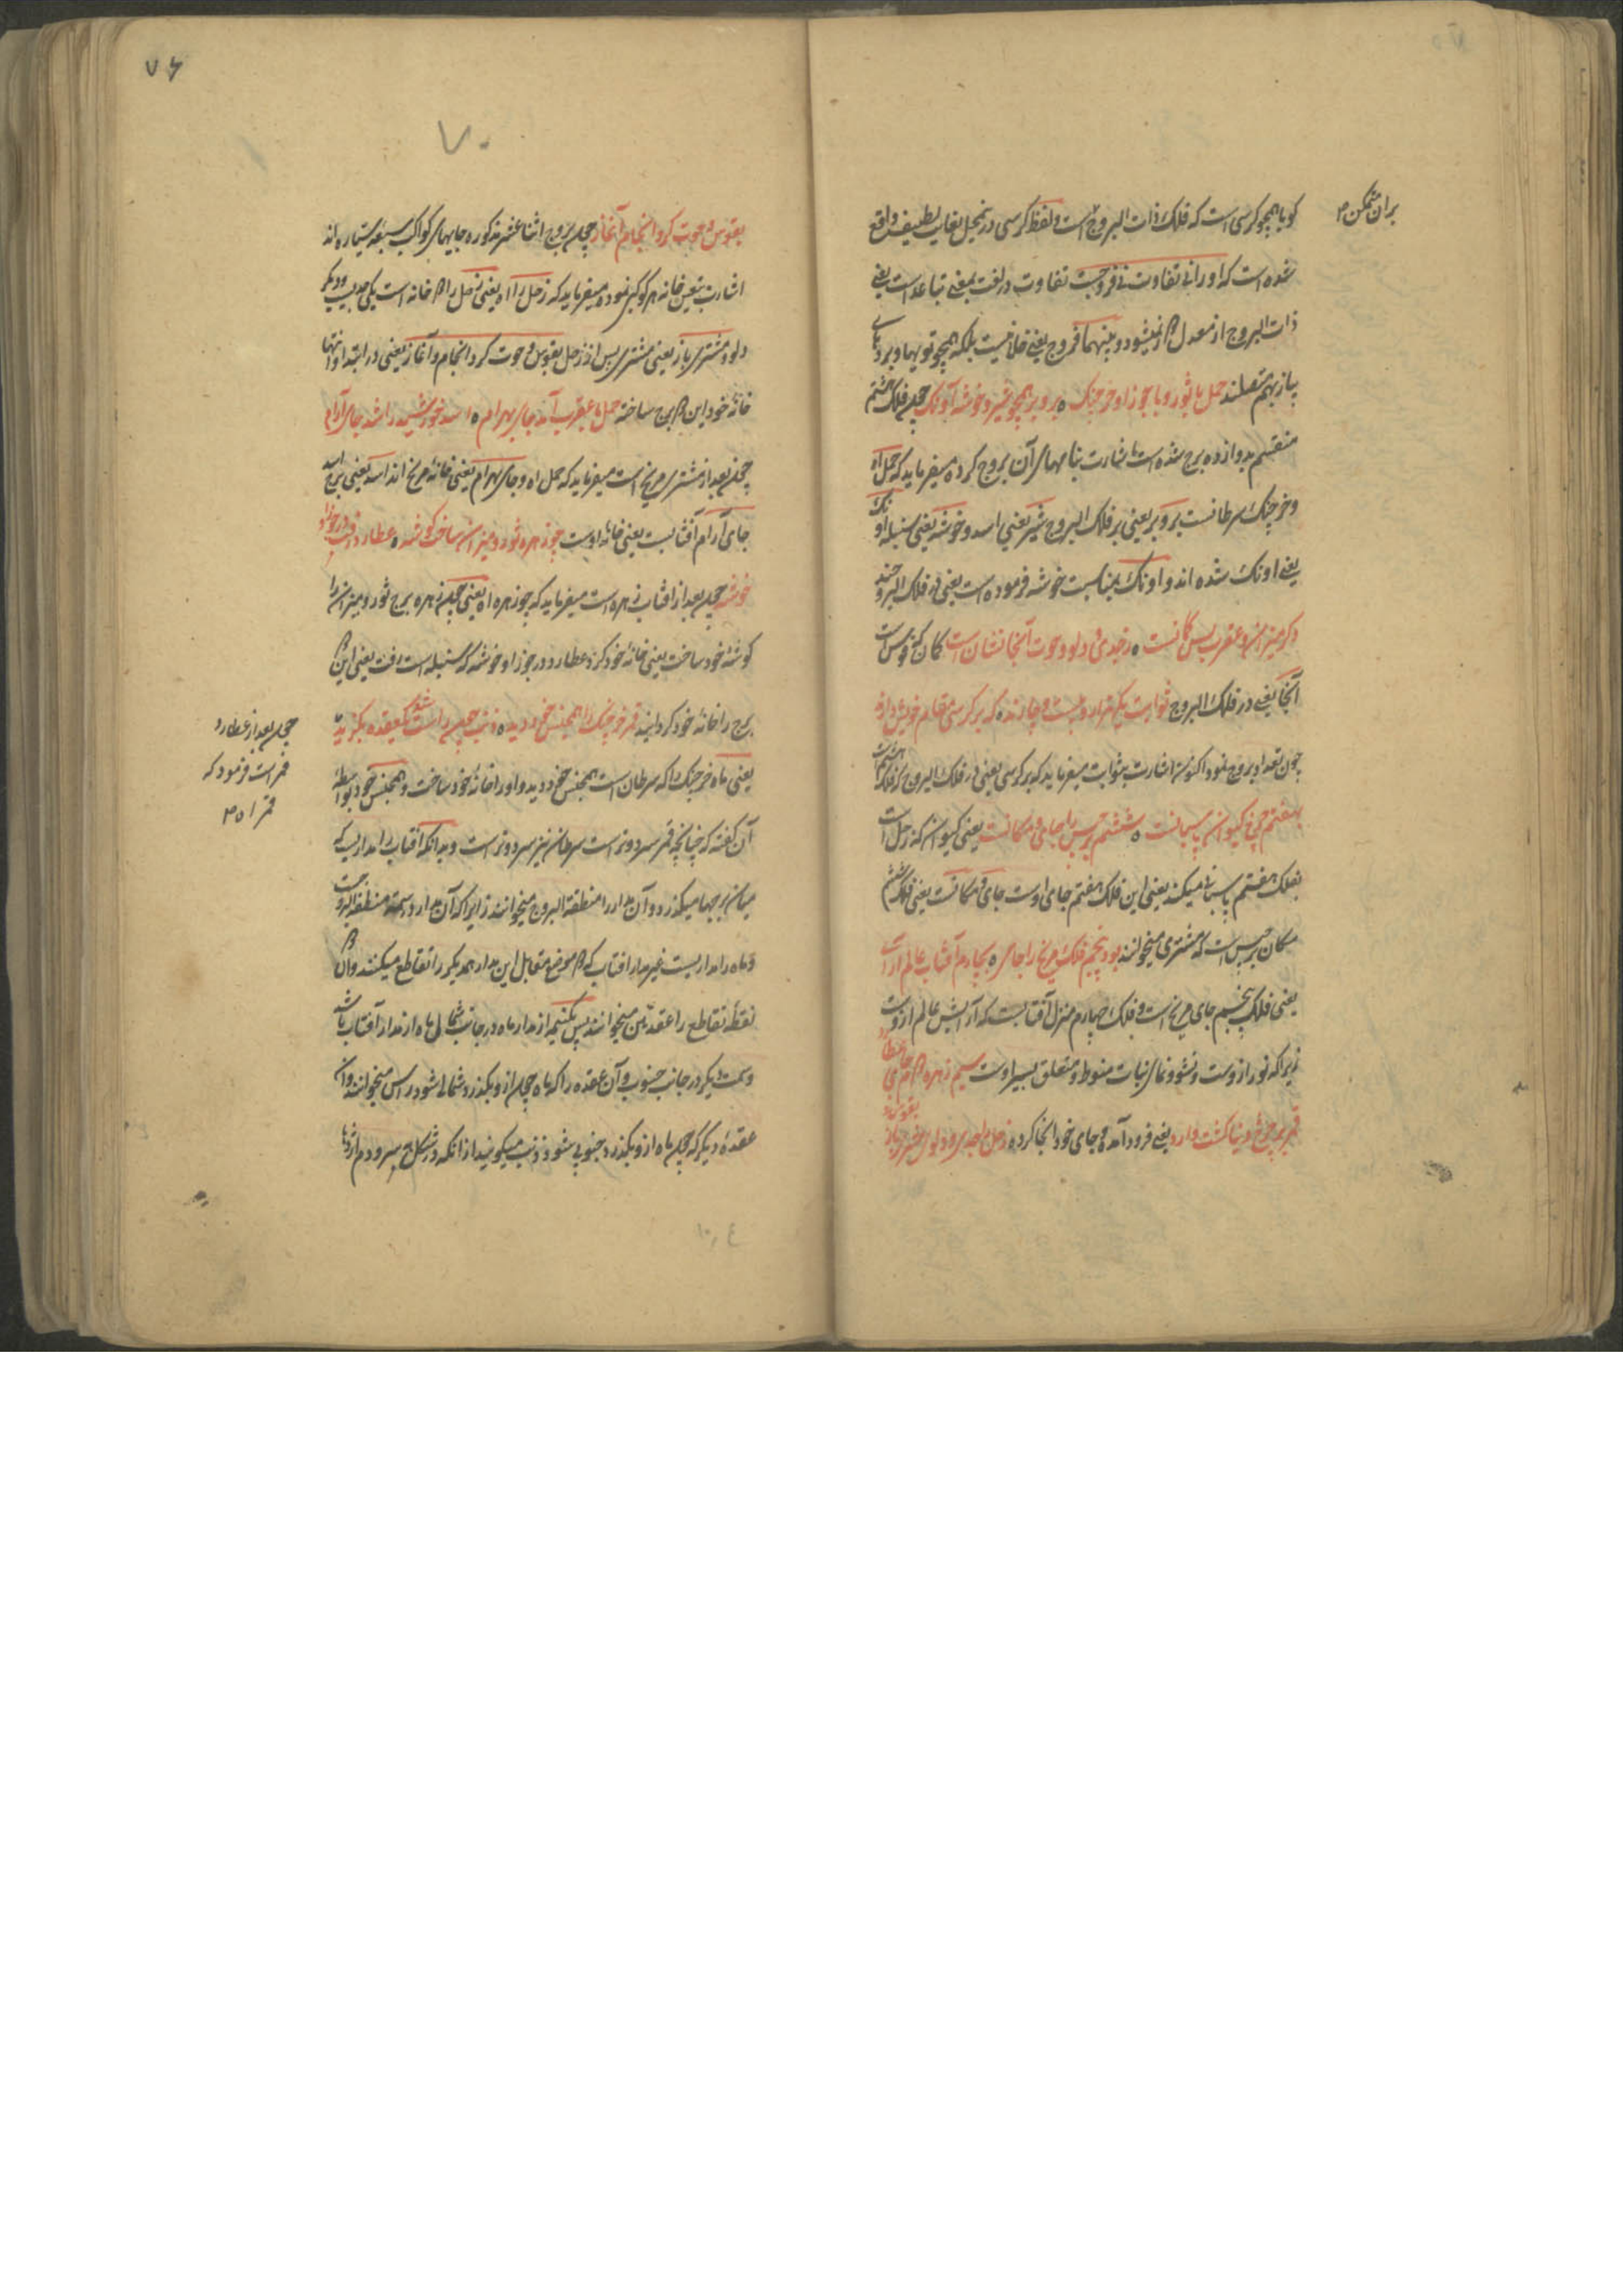 بران متمکن م
گویا همچو کرسی است که فلک ذات البروج است و لفظ کرسی درین محل بغایت لطیف واقع
شده است که او را نی تفاوت نی فروجست تفاوت در لغت بمعنی تباعد است یعنی
ذات البروج از معدل دور نمیشود و بینهما فروج یعنی خلا نیست بلکه همچو تویهای
پیاز بهم متصلند حمل با ثور و با جوزا و خرچنگ ه برو بر همچو شیر و خوشه آونگ چون فلک هشتم
منقسم بدوازده برج شده است اشارت بنامهای آن بروج کرده میفرماید که حمل اه
و خرچنگ سرطانست برو بر یعنی بر فلک البروج شیر یعنی اسد و خوشه یعنی سنبله اونک
یعنی اونک شده اند و اونک بمناسبت خوشه فرموده است یعنی در فلک البروج
دگر میزان و عقرب پس کمانست ه ز جدی و دلو و حوت آنجا نشان است کمان که قوس است
آنجا یعنی در فلک البروج ثوابت یکهزار و بیست و چارند ه که بر کرسی مقام خویش دارند
چون تعداد بروج نمود اکنون اشارت بثوابت میفرماید که بر کرسی یعنی در فلک البروج که فلک هشتم است
بهفتم چرخ کیوان پاسبانست ه ششم برجیس را جای و مکانست یعنی کیوان که زحل است
بفلک هفتم پاسبانی میکند یعنی این فلک هفتم جای اوست جای و مکانست یعنی فلک ششم
مکان برجیس است که مشتری میخوانند بود پنجم فلک مریخ را جای ه بچارم آفتاب عالم آرای
یعنی فلک پنجم جای مریخ است و فلک چهارم منزل آفتابست که آرایش عالم ازوست
زیرا که نور ازوست و نشو و نمای نبات منوط و متعلق بسیر اوست سیم زهره دوم جای عطارد
قمر بر چرخ دنیا گشت وارد یعنی فرود آمده و جای خود انجا کرده زحل را جدی و دلو و مشتری باز
۷۶
۷۰
بقوس و حوت کرد انجام آغاز چون بروج اثنا عشر مذکوره جایهای کواکب سبعه سیاره اند
اشارت بتعین خانه هر کوکبی نموده میفرماید که زحل را اه یعنی زحل را دو خانه است یکی جدیست و دیگر
دلو و مشتری باز یعنی مشتری پس از زحل بقوس و حوت کرد انجام و آغاز یعنی در ابتدا و انتها
خانه خود این دو برج ساخته حمل با عقرب آمد جای بهرام ه اسد خورشید را شد جای آرام
چون بعد از مشتری مریخ است میفرماید که حمل اه و جای بهرام یعنی خانه مریخ اند اسد یعنی برج اسد
جای آرام آفتابست یعنی خانه اوست چو زهره ثور و میزان ساخت گوشه ه عطارد رفت در جوزا و
خوشه چون بعد از افتاب زهره است میفرماید که چو زهره اه یعنی چون زهره برج ثور و میزان را
گوشه خود ساخت یعنی خانه خود کرد عطارد در جوزا و خوشه که سنبله است رفت یعنی این دو
برج را خانه خود گردانید قمر خرچنگ را همجنس خود دید ه ذنب چون راس شد یک عقده بگزید
یعنی ماه خرچنگ را که سرطان است همجنس خود دید و او را خانه خود ساخت و همجنس خود بواسطه
آن گفته که چنانچه قمر سرد و تر است سرطان نیز سرد و تر است و بدانکه افتاب را مداریست که
میان برجها میگذرد و آن مدار را منطقة البروج میخوانند زیرا که آن مدار در سمت منطقة البروجست
و ماه را مداریست غیر مدار افتاب که دو موضع متقابل این مدار همدیگر را تقاطع میکنند و آن دو
نقطه تقاطع را عقدتین میخوانند پس یک نیمه از مدار ماه در جانب شمالی ماه از مدار آفتاب باشد
و سمت دیگر در جانب جنوب و آن عقده را که ماه چون ازو بگذرد شمالی شود راس میخوانند و آن
عقده دیگر که چون ماه ازو بگذرد جنوبی شود ذنب میگویند از آنکه در شکل سر و دم اژدها
چون بعد از عطارد
قمر است فرمود که
قمر اه م